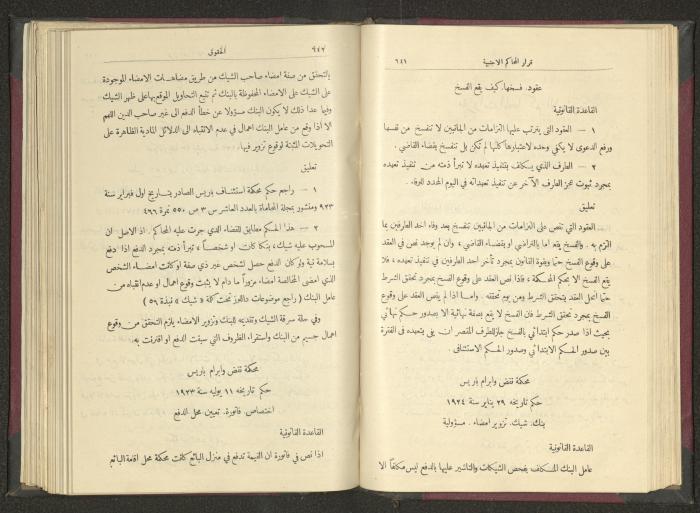 قرار المحاكم الاجنبية ٦٤١
عقود. فسخها. كيف يقع الفسخ
القاعدة القانونية
١ — العقود التي يترتب عليها التزامات من الجانبين لا تنفسخ من نفسها
ورفع الدعوى لا يكفي وحده لاعتبارها كأنها لم تكن بل تنفسخ بقضاء القاضي.
٢ — الطرف الذي يستكلف بتنفيذ تعهده لا تبرأ ذمته من تنفيذ تعهده
بمجرد ثبوت عجز الطرف الآخر عن تنفيذ تعهداته في اليوم المحدد للوفاء.
تعليق
العقود التي تنص على التزامات من الجانبين تنفسخ بعد وفاء احد الطرفين بما
التزم به. والفسخ يقع اما بالتراضي او بقضاء القاضي، وان لم يوجد نص في العقد
على وقوع الفسخ حتما وبقوة القانون بمجرد تأخر احد الطرفين في تنفيذ تعهده، فلا
يقع الفسخ الا بحكم المحكمة، فاذا نص العقد على وقوع الفسخ بمجرد تحقق الشرط
حتما انحل العقد بتحقق الشرط ومن يوم تحققه. واما اذا لم ينص العقد على وقوع
الفسخ بمجرد تحقق الشرط فان الفسخ لا يقع بصفة نهائية الا بصدور حكم نهائي
بحيث اذا صدر حكم ابتدائي بالفسخ جاز للطرف المقصر ان يفي بتعهده في الفترة
بين صدور الحكم الابتدائي وصدور الحكم الاستئنافي
محكمة نقض وابرام باريس
حكم تاريخه ٢٩ يناير سنة ١٩٢٤
بنك. شيك. تزوير امضاء. مسؤولية
القاعدة القانونية
عامل البنك المتكلف بفحص الشيكات والتأشير عليها بالدفع ليس مكلفاً الا
٦٤٢ الحقوق
بالتحقق من صفة امضاء صاحب الشيك من طريق مضاهات الامضاء الموجودة
على الشيك على الامضاء المحفوظة بالبنك ثم تتبع التحاويل الموقع بها على ظهر الشيك
وفيما عدا ذلك لا يكون البنك مسؤولا عن خطأ الدفع الى غير صاحب الدين اللهم
الا اذا وقع من عامل البنك اهمال في عدم الانتباه الى الدلائل المادية الظاهرة على
التحويلات المثبتة لوقوع تزوير فيها.
تعليق
١ — راجع حكم محكمة استئناف باريس الصادر بتاريخ اول فبراير سنة
٩٢٣ ومنشور بمجلة المحاماة بالعدد العاشر س ٣ ص ٥٥٠ نمرة ٤٦٦
٢ — هذا الحكم مطابق للقضاء الذي جرت عليه المحاكم. اذ الاصل ان
المسحوب عليه شيك، بنكا كان او شخصاً، تبرأ ذمته بمجرد الدفع اذا دفع
بسلامة نية ولو كان الدفع حصل لشخص غير ذي صفة او كانت امضاء الشخص
الذي امضى المخالصة امضاء مزوراً ما دام لا يثبت وقوع اهمال او عدم انتباه من
عامل البنك (راجع موضوعات دالوز تحت كلمة «شيك» نبذة ٥٩)
وفي حالة سرقة الشيك وتقديمه للبنك وتزوير الامضاء يلزم التحقق من وقوع
اهمال جسيم من البنك واستقراء الظروف التي سبقت الدفع او اقترنت به.
محكمة نقض وابرام باريس
حكم تاريخه ١١ يوليه سنة ١٩٢٣
اختصاص. فاتورة. تعيين محل الدفع
القاعدة القانونية
اذا نص في فاتورة ان القيمة تدفع في منزل البائع كانت محكمة محل اقامة البائع